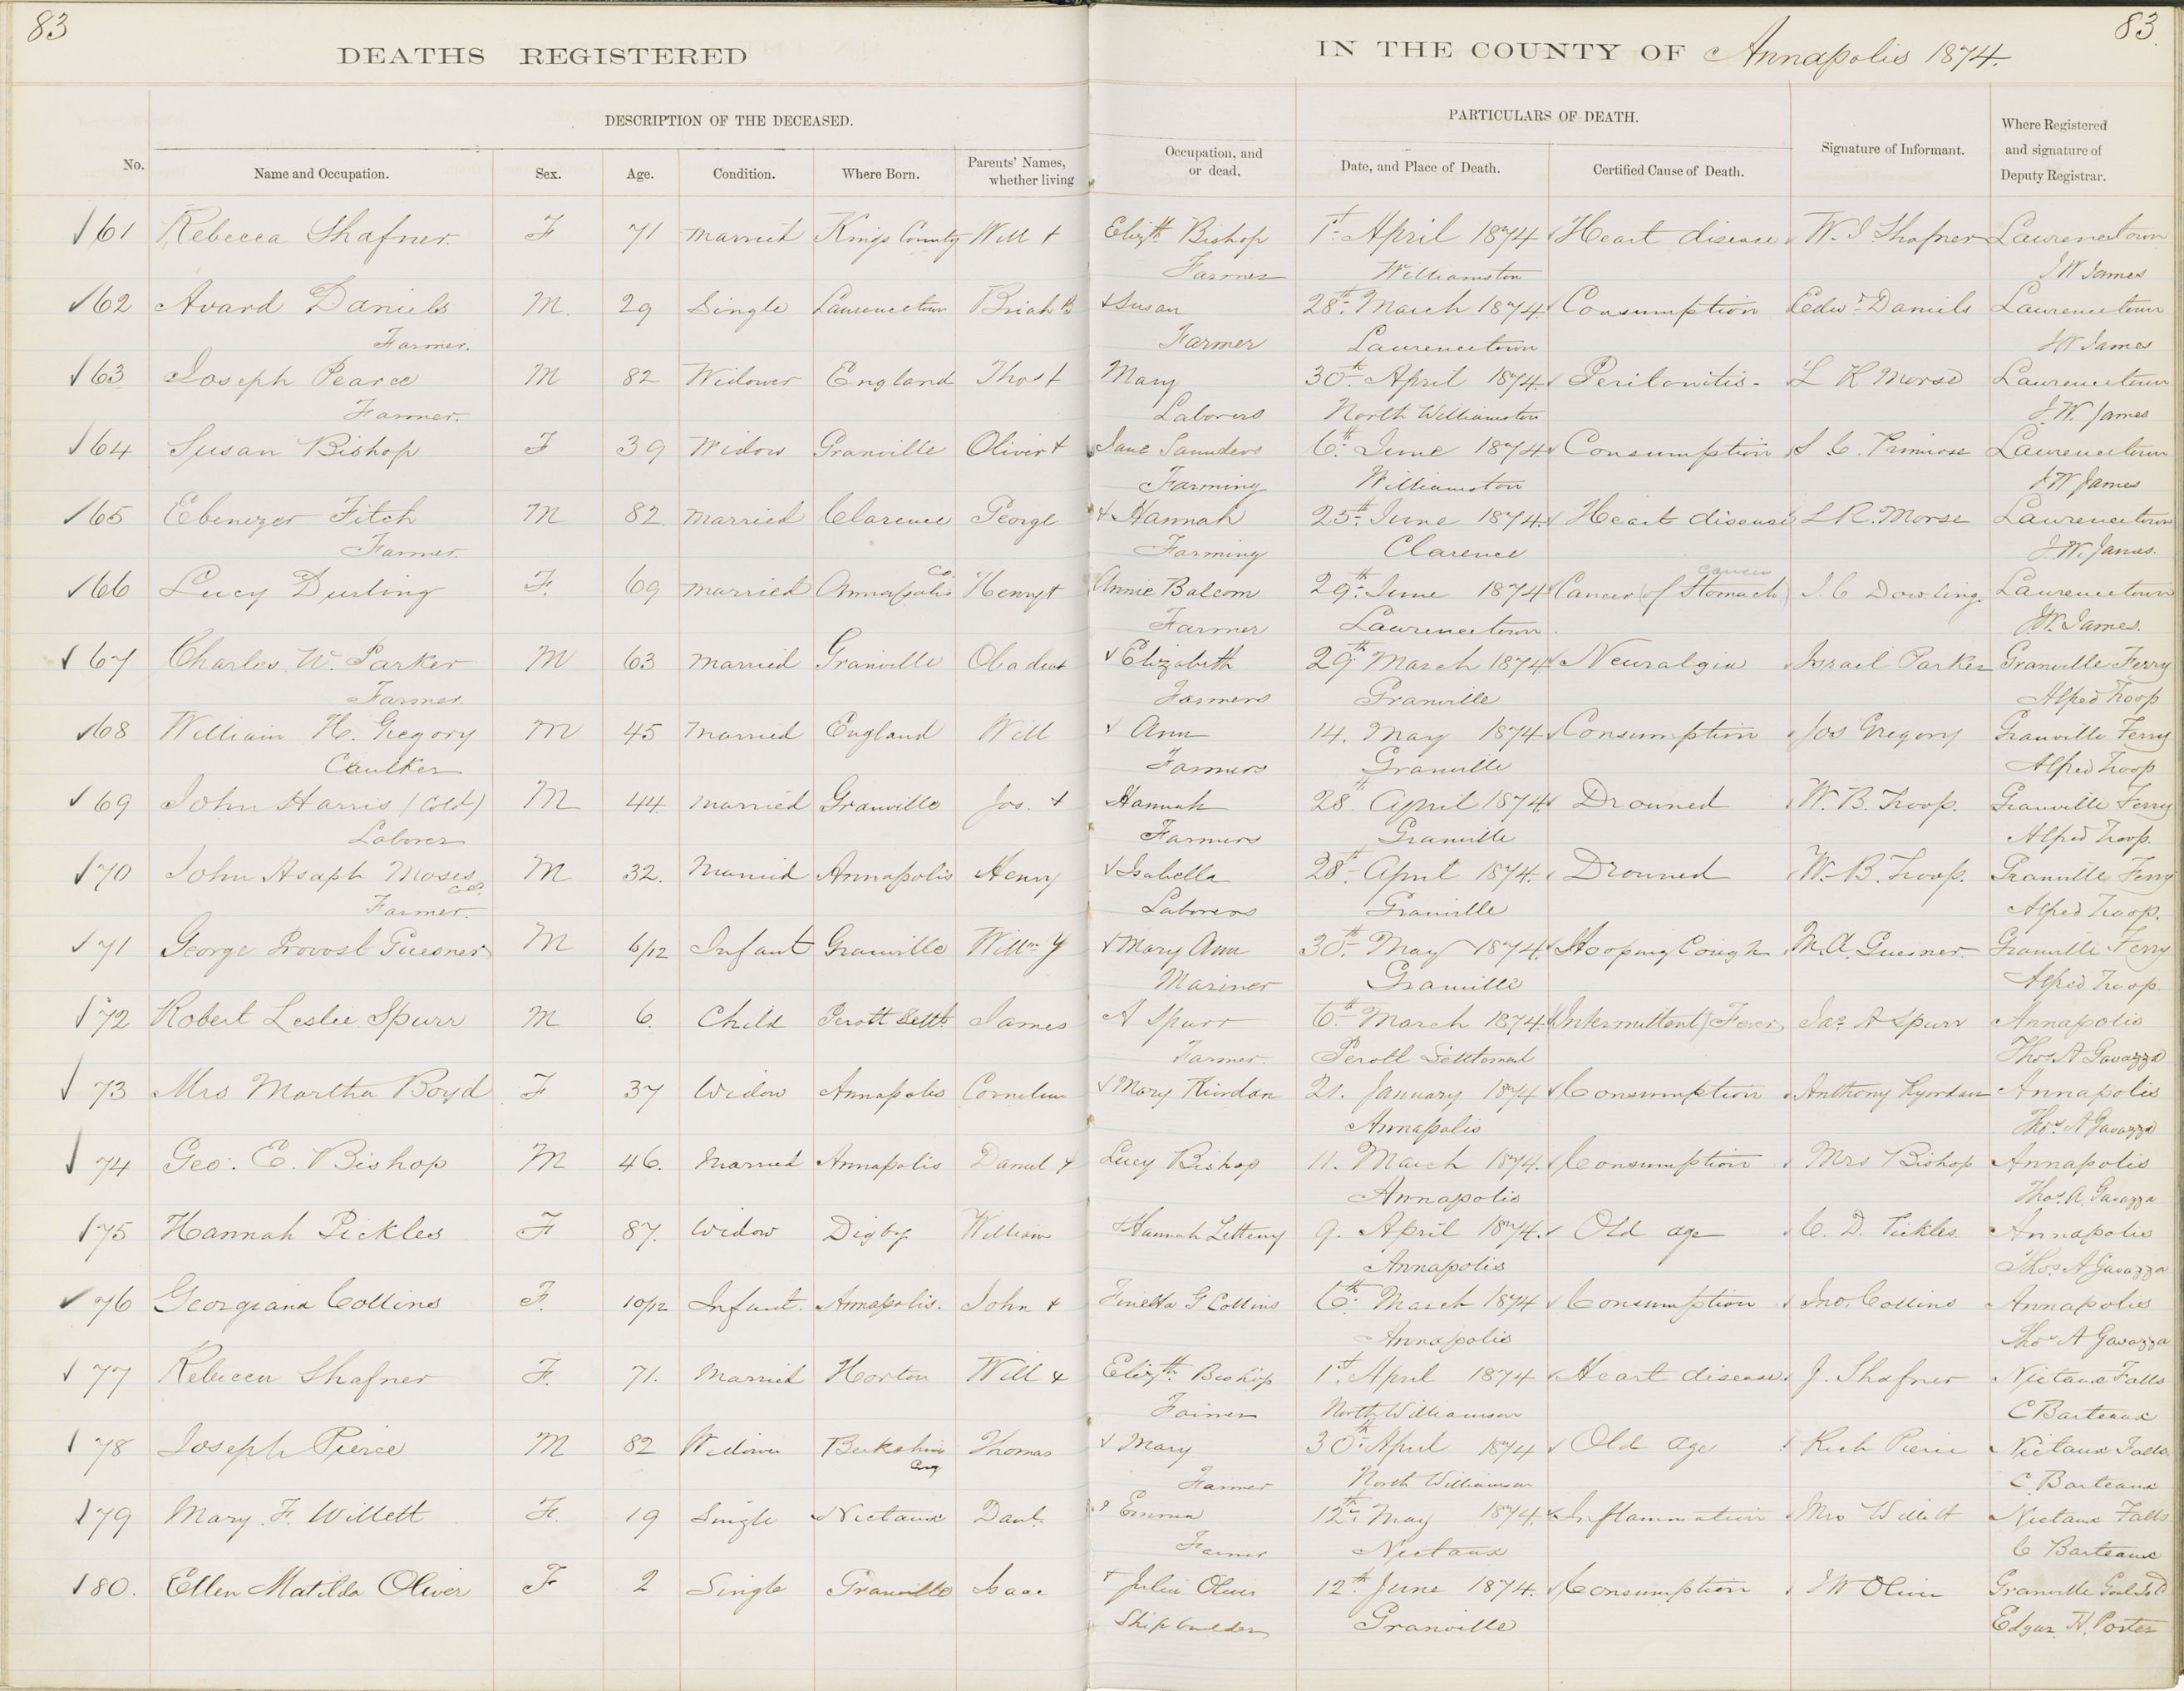 83
83.
DEATHS REGISTERED IN THE COUNTY OF Annapolis 1874.
DESCRIPTION OF THE DECEASED. PARTICULARS OF DEATH.
No. Name and Occupation. Sex. Age. Condition. Where Born. Parents' Names, whether living Occupation, and or dead. Date, and Place of Death. Certified Cause of Death. Signature of Informant. Where Registered and signature of Deputy Registrar.
61 Rebecca Shafner F 71 married Kings County Will + Elizth Bishop 1st April 1874 Heart disease W. I. Shafner Lawrencetown
Farmer Williamston J W James
62 Avard Daniels M. 29 Single Lawrencetown +Susan 28th March 1874. Consumption Edwd Daniels Lawrencetown
Farmer. Farmer Laurencetown JW James
63 Joseph Pearce M 82 Widower England Thos + Mary 30th April 1874. Peritonitis- L R Morse Lawrencetown
Farmer. Laborers North Williamston J. W. James
64 Susan Bishop F 39 Widow Granville Oliver + Jane Saunders 6th June 1874 Consumption S C. Primrose Lawrencetown
Farming Williamston J W James
65 Ebenezer Fitch M 82 married Clarence George + Hannah 25th June 1874. Heart disease L R. Morse Lawrencetown
Farmer. Farming Clarence J. W. James.
66 Lucy Durling F. 69 married Annapolis Co Henry + Annie Balcom 29th June 1874 Cancer (of Stomach) cancer I. C Dowling Lawrencetown
Farmer Lawrencetown. J.W. James.
67 Charles W. Parker M 63 married Granville + Elizabeth 29th March 1874 Neuralgia Israel Parker Granville Ferry
Farmer. Farmers Granville Alfred Troop
68 William H. Gregory M 45 married England Will + Ann 14. May 1874 Consumption Jos Gregory Granville Ferry
Caulker Farmers Granville Alfred Troop
69 John Harris (Cold) M 44. married Granville Jos. + Hannah 28th April 1874 Drowned W. B. Troop. Granville Ferry
Laborer Farmers Granville Alfred Troop.
70 John Asaph Moses Cold M 32. Married Annapolis Henry + Isabella 28th April 1874. Drowned W. B. Troop. Granville Ferry
Farmer. Laborers Granville Alfred Troop.
71 George Provost Guesner M 6/12 Infant Granville Willm Y + Mary Ann 30th May 1874. Hooping Cough M. A. Guesner Granville Ferry
Mariner Granville Alfred Troop.
72 Robert Leslie Spurr M 6. Child Perott Settlt James A Spurr 6th March 1874. Intermittent) Fever Jas A Spurr Annapolis
Farmer. Perott Settlement Thos. A Gavazza
73 Mrs Martha Boyd F 37 Widow Annapolis Cornelius + Mary Riordan 21. January 1874 Consumption Anthony Ryordan Annapolis
Annapolis Thos. A Gavazza
74 Geo. E. Bishop M 46. Married Annapolis Daniel + Lucy Bishop 11. March 1874. Consumption Mrs Bishop Annapolis
Annapolis Thos. A. Gavazza
75 Hannah Pickles F 87. Widow Digby William + Hannah Letteny 9. April 1874. Old age C. D. Pickles. Annapolis
Annapolis Thos. A Gavazza
76 Georgiana Collins F. 10/12 Infant. Annapolis. John + G Collins 6th March 1874 Consumption Jno. Collins Annapolis
Annapolis Thos A Gavazza
77 Rebecca Shafner F. 71. Married Horton Will + Elizth Bishop 1st April 1874 Heart disease. J. Shafner Nictaux Falls
Farmer North Williamson C Barteaux
78 Joseph Pierce M 82 Widower Berkshire Eng Thomas + Mary 30th April 1874 Old age Rich Pierce Nictaux Falls.
Farmer North Williamson C Barteaux
79 Mary F. Willett F. 19 Single Nictaux Danl. + Emma 12th May 1874. Inflammation Mrs Willett Nictaux Falls
Farmer Nictaux C Barteaux
80. Ellen Matilda Oliver F 2 Single Granville Isaac + Julia Oliver 12th June 1874. Consumption J W Oliver Granville
Shipbuilder Granville Edgar H. Porter